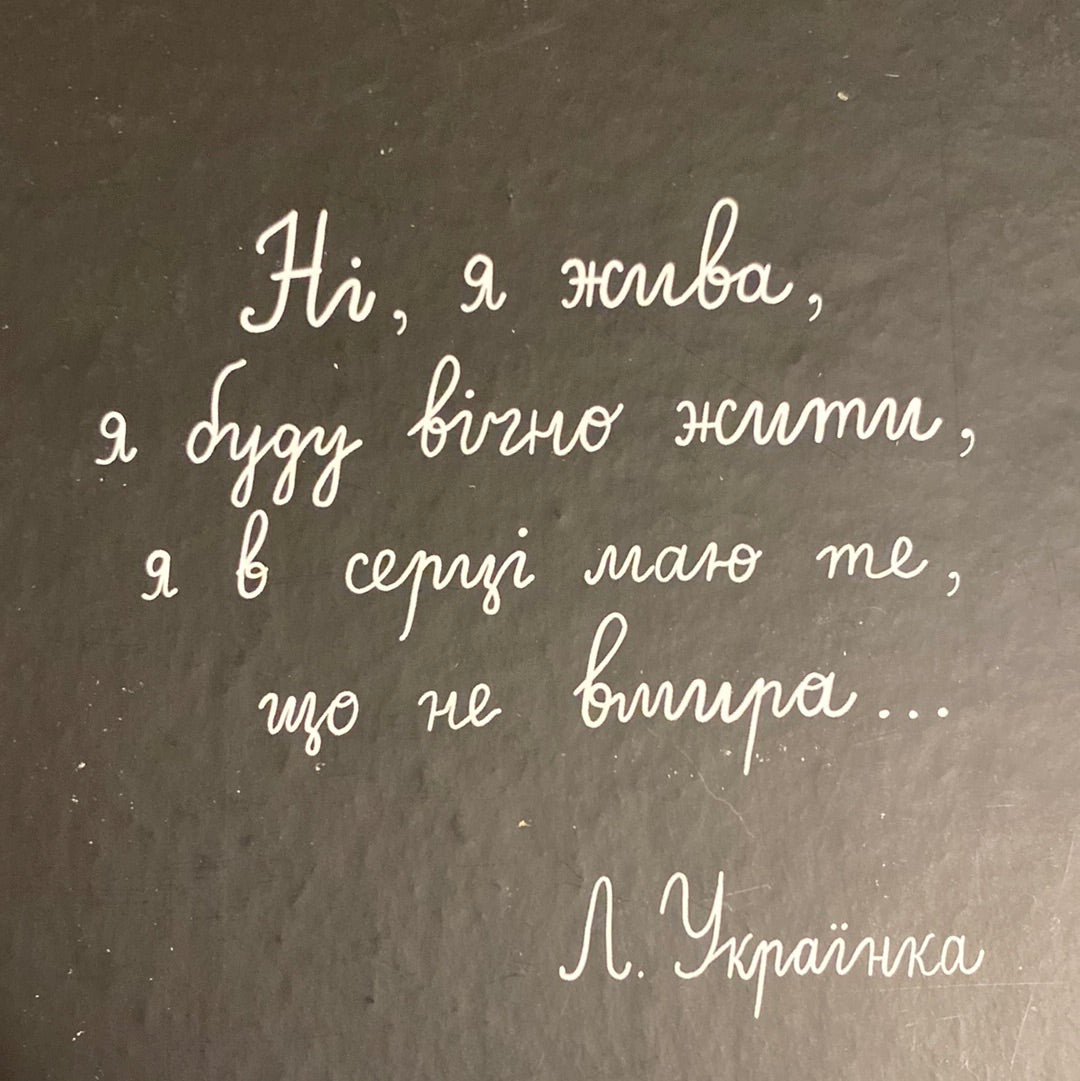 Ні, я жива,
я буду вічно жити,
я в серці маю те,
що не вмира...
Л. Українка